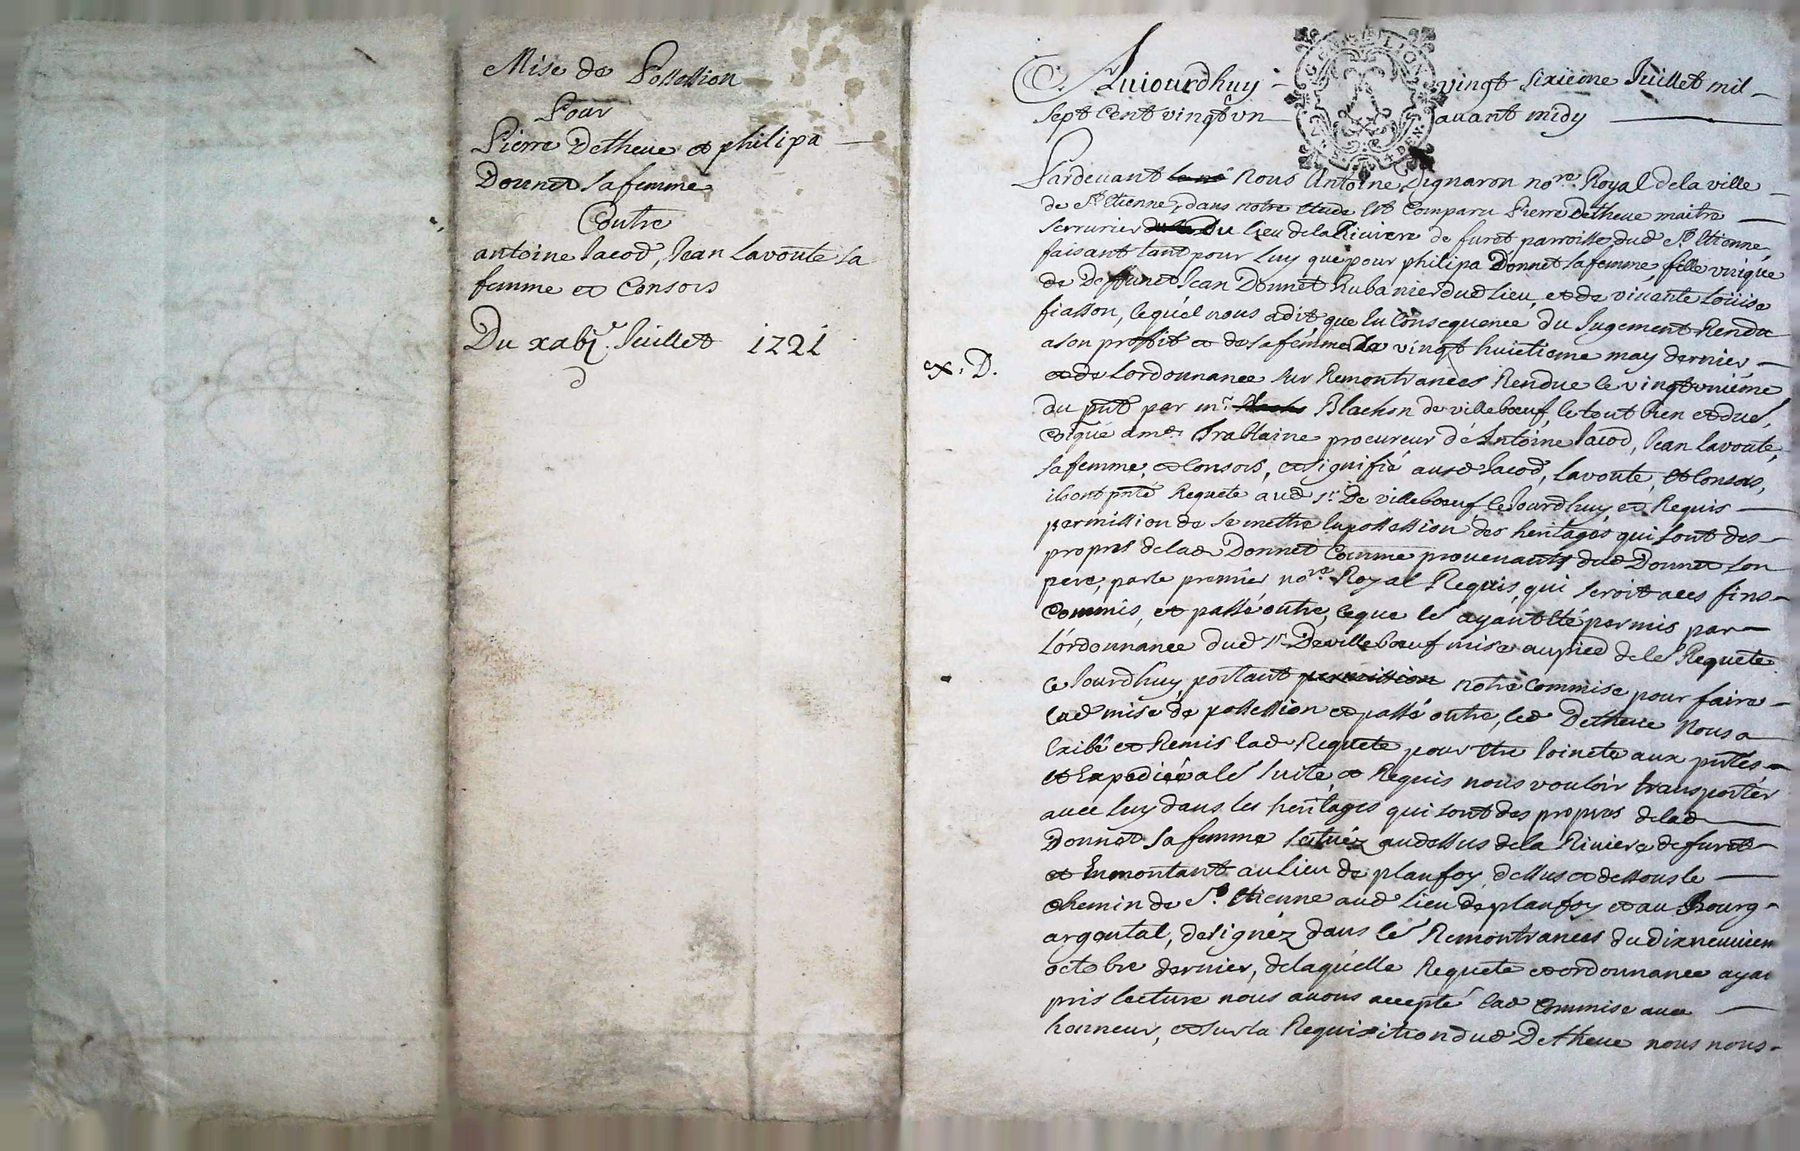 Mise de Possession
Pour
Pierre Detheue et philipa
Donnet sa femme
Contre
antoine Jacod, Jean Lavoute sa
femme et Consors
Du xxbj.e Juillet 1721
Aujourdhuy vingt sixieme Juillet mil
sept cent vingt vn auant midy
Pardeuant nous Antoine Pignaron no.re Royal de la ville
de S.t Etienne, dans notre etude est Comparu Pierre Detheue maitre
serrurier Du lieu de la Riuiere de furet parroisse dud S.t Etienne,
faisant tant pour luy que pour philipa Donnet sa femme, fille vnique
de Deffunct Jean Donnet Rubanier dud lieu, et de viuante Loüise
fiasson, lequel nous a dit que En Consequence du Jugement Rendu
a son proffit et de sa femme Le vingt huictieme may dernier
ex. D.
et de Lordonnance sur Remontrances Rendue le vingt vnieme
du pnt par m.r Blachon de villebœuf, le tout bien et duë.
 a m.e Trablaine procureur d'Antoine Jacod, Jean Lavoute,
sa femme, et Consors, et signifié ausd Jacod, Lavoute, et Consors,
ils ont pnté Requete aud s.r De villebœuf Ce Jourdhuy et Requis
permission de se mettre En possession des heritages qui sont des
propres de lad Donnet Comme prouenants dud Donnet son
pere, par le premier no.re Royal Requis, qui seroit a ces fins
Commis, et passé outre, ce que le ayant Eté permis par
L'ordonnance dud s.r De villebœuf mise au pied de le Requete
Ce Jourdhuy portant notre Commise pour faire
lad mise de possession et passé outre, led Detheue Nous a
Exibé et Remis lad Requete pour Etre Joincte aux pntes
et Expediée a le suite, et Requis nous vouloir transporter
auec luy dans les heritages qui sont des propres de lad
Donnet sa femme scituéz au dessus de la Riuiere de furet
et En montant au lieu de planfoy, dessus et dessous le
chemin de S.t Etienne aud lieu de planfoy et au Bourg
argental, designéz dans le Remontrances du dixneuuiem
octobre dernier, de laquelle Requete et ordonnance ayan
pris lecture nous auons accepté lad Commise auec
honneur, et sur la Requisition dud Detheue nous nous